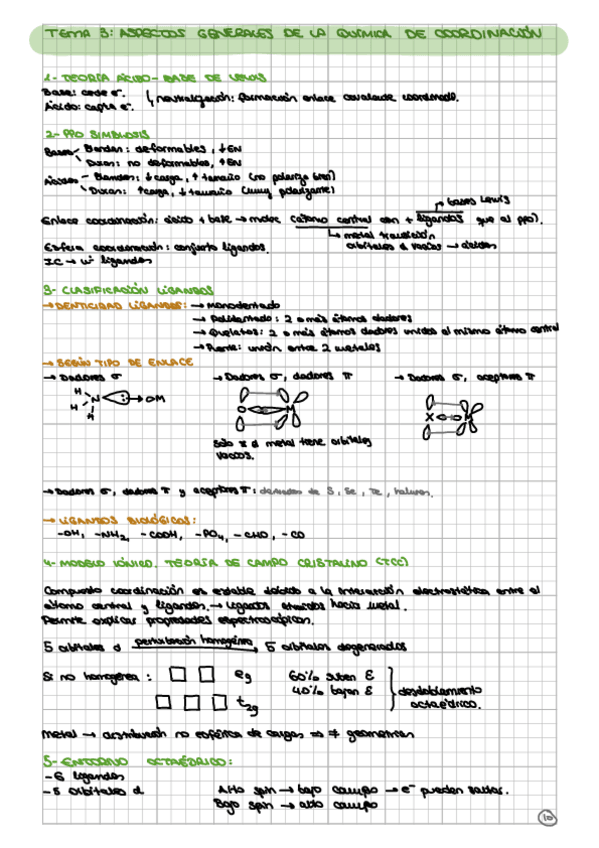 TEMA 3: ASPECTOS GENERALES DE LA QUÍMICA DE COORDINACIÓN
1- TEORÍA ÁCIDO-BASE DE LEWIS
Base: cede e⁻.
Ácido: capta e⁻.
↳ neutralización: formación enlace covalente coordinado.
2- PPO SIMBIOSIS
Bases
Blandas: deformables, ↓EN
Duras: no deformables, ↑EN
Ácidos
Blandos: ↓carga, ↑tamaño (no polariza bien)
Duros: ↑carga, ↓tamaño (muy polarizante)
→ bases Lewis
Enlace coordinación: ácido + base → molec (átomo central con + ligandos que al ppo).
↳ metal transición
orbitales d vacíos → ácidos
Esfera coordinación: conjunto ligandos.
IC → nº ligandos
3- CLASIFICACIÓN LIGANDOS
→ DENTICIDAD LIGANDOS: → Monodentado
→ Polidentado: 2 o más átomos dadores
→ Quelatos: 2 o más átomos dadores unidos al mismo átomo central
→ Puente: unión entre 2 metales
→ SEGÚN TIPO DE ENLACE
→ Dadores σ
→ Dadores σ, dadores π
→ Dadores σ, aceptores π
H
H
N
H
→ OM
O
M
X
M
Solo si el metal tiene orbitales
vacíos.
→ Dadores σ, dadores π y aceptores π: derivados de S, Se, Te, haluros.
→ LIGANDOS BIOLÓGICOS:
-OH, -NH₂, -COOH, -PO₄, -CHO, -CO
4- MODELO IÓNICO. TEORÍA DE CAMPO CRISTALINO (TCC)
Compuesto coordinación es estable debido a la interacción electrostática entre el
átomo central y ligandos. → Ligandos atraídos hacia metal.
Permite explicar propiedades espectroscópicas.
5 orbitales d perturbación homogénea → 5 orbitales degenerados
Si no homogénea:
eg
t₂g
60% suben E
40% bajan E
desdoblamiento
octaédrico.
Metal → distribución no esférica de cargas ⇒ ≠ geometrías
5- ENTORNO OCTAÉDRICO:
- 6 ligandos
- 5 orbitales d
Alto spin → bajo campo → e⁻ pueden saltar.
Bajo spin → alto campo
10